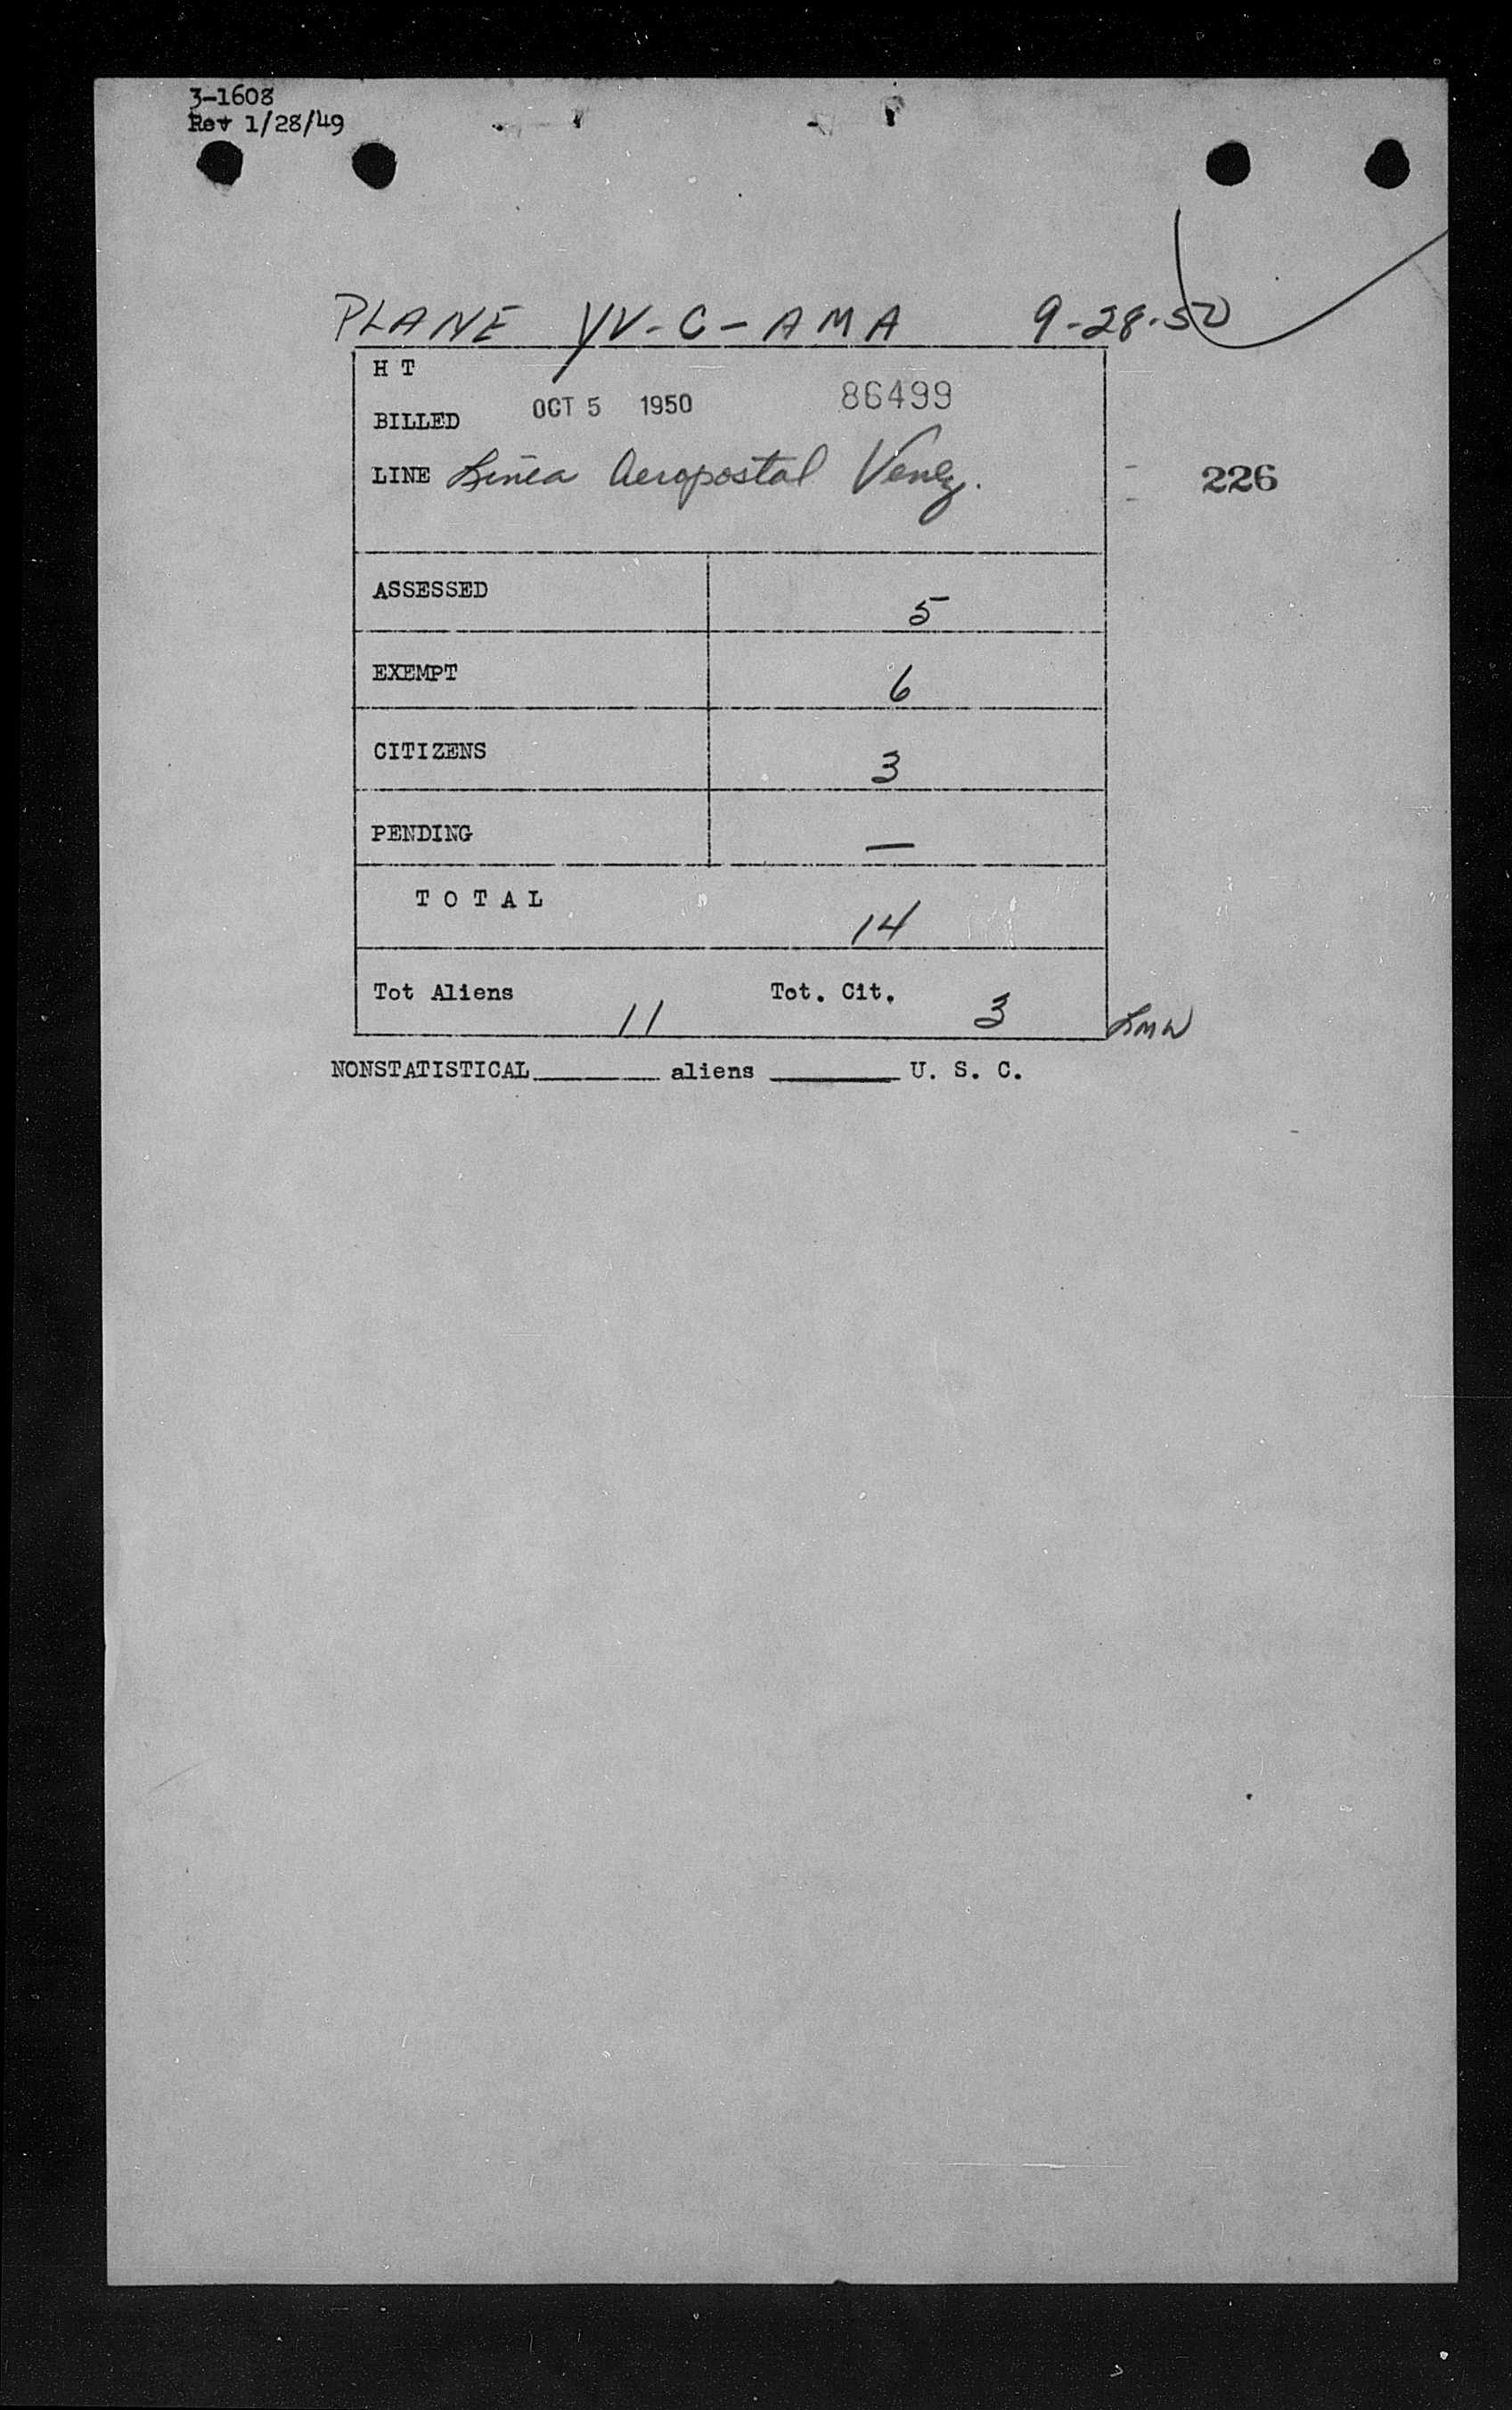 3-1608
Rev 1/28/49
PLANE YV-C-AMA 9-28-50
H T
BILLED OCT 5 1950 86499
LINE Linea Aeropostal Venez.
226
ASSESSED 5
EXEMPT 6
CITIZENS 3
PENDING —
T O T A L 14
Tot Aliens 11 Tot. Cit. 3
NONSTATISTICAL________ aliens ________ U. S. C.